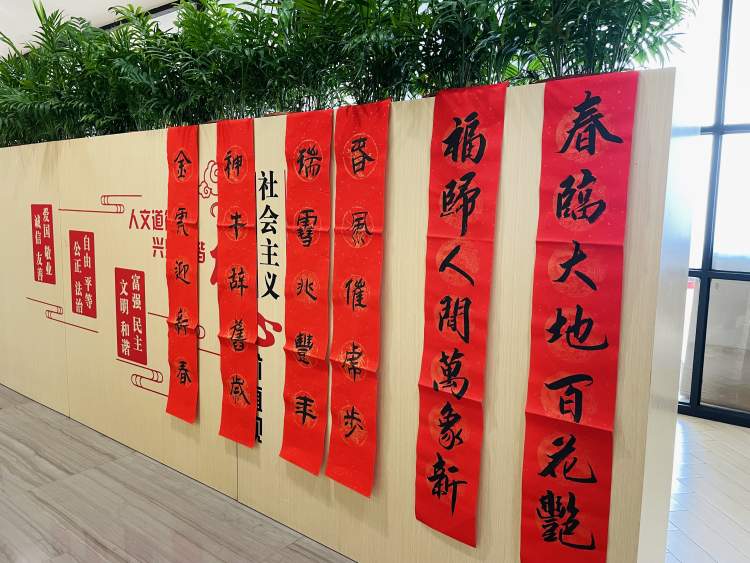 春臨大地百花艷
福歸人間萬象新
春風催虎步
瑞雪兆豐年
神牛辭舊歲
金虎迎新春
社会主义
人文道
兴
富强 民主
文明 和谐
自由 平等
公正 法治
爱国 敬业
诚信 友善